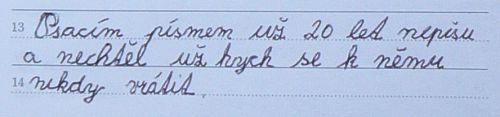 13 Psacím písmem už 20 let nepíšu
a nechtěl už bych se k němu
14 nikdy vrátit.